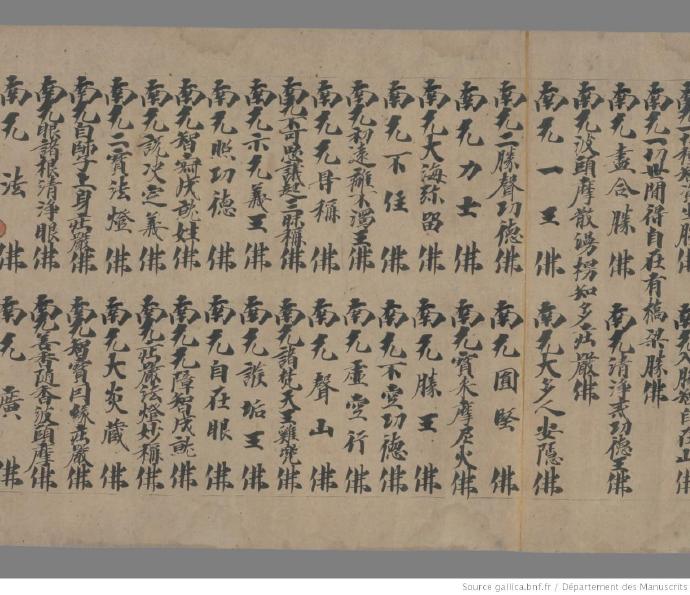 南无一切世間得自在有橋梁勝佛
南无盡合勝佛 南无清淨戒功德王佛
南无波頭摩散 拐知多莊嚴佛
南无一王佛 南无大多人安隱佛
南无二勝聲功德佛 南无固堅佛
南无力士佛 南无寶末摩尼火佛
南无大海弥留佛 南无勝王佛
南无不住佛 南无不空功德佛
南无初遠離不濁王佛 南无虛空行佛
南无无骨稱佛 南无聲山佛
南无不可思議起三昧稱佛 南无諸梵天王難兜佛
南无示无義王佛 南无護垢王佛
南无照功德佛 南无自在眼佛
南无智寂成就姓佛 南无无障智成就佛
南无說决定義佛 南无莊嚴法燈妙稱佛
南无二寶法燈佛 南无大炎藏佛
南无自師子上身莊嚴佛 南无智寶因緣莊嚴佛
南无眼諸根清淨眼佛 南无善香隨香波頭摩佛
南无法佛 南无廣佛
Source gallica.bnf.fr / Département des Manuscrits